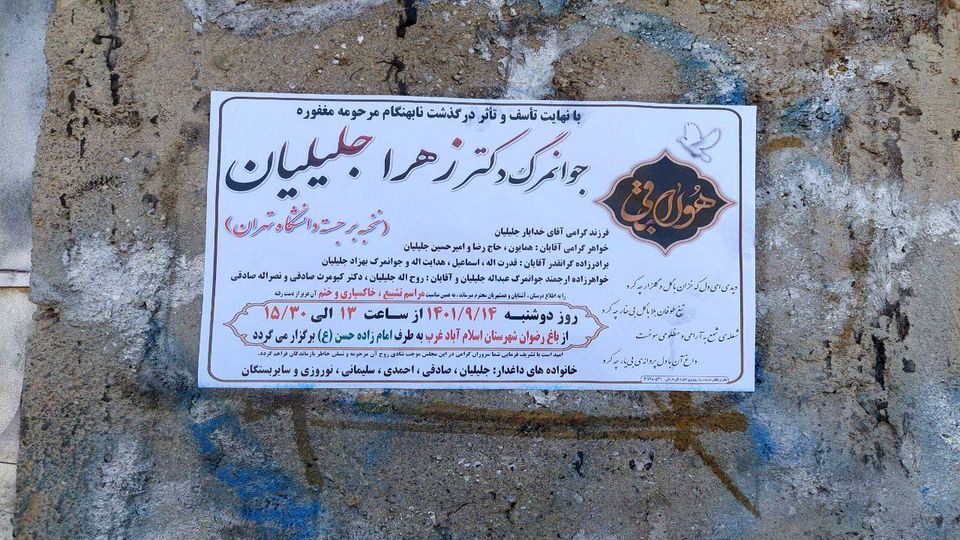 با نهایت تأسف و تأثر درگذشت نابهنگام مرحومه مغفوره
جوانمرگ دکتر زهرا جلیلیان
(نخبه برجسته دانشگاه تهران)
هوالباقی
فرزند گرامی آقای خدایار جلیلیان
خواهر گرامی آقایان : همایون ، حاج رضا و امیرحسین جلیلیان
برادرزاده گرانقدر آقایان : قدرت اله ، اسماعیل ، هدایت اله و جوانمرگ بهزاد جلیلیان
خواهرزاده ارجمند جوانمرگ عبداله جلیلیان و آقایان : روح اله جلیلیان ، دکتر کیومرث صادقی و نصراله صادقی
را به اطلاع دوستان ، آشنایان و همشهریان محترم میرساند ، به همین مناسبت مراسم تشییع ، خاکسپاری و ختم آن عزیز از دست رفته
روز دوشنبه ۱۴۰۱/۹/۱۴ از ساعت ۱۳ الی ۱۵/۳۰
از باغ رضوان شهرستان اسلام آباد غرب به طرف امام زاده حسن (ع) برگزار می گردد
امید است با تشریف فرمایی شما سروران گرامی در این مجلس موجب شادی روح آن مرحومه و تسلی خاطر بازماندگان فراهم گردد.
خانواده های داغدار: جلیلیان ، صادقی ، احمدی ، سلیمانی ، نوروزی و سایر بستگان
دیدی ای دل که خزان با گل و گلزار چه کرد
تیغ طوفان بلا با گل بی خار چه کرد
شعله‌ی شمع به آرامی و مظلومی سوخت
داغ آن با دل پروانه‌ی بی یار چه کرد